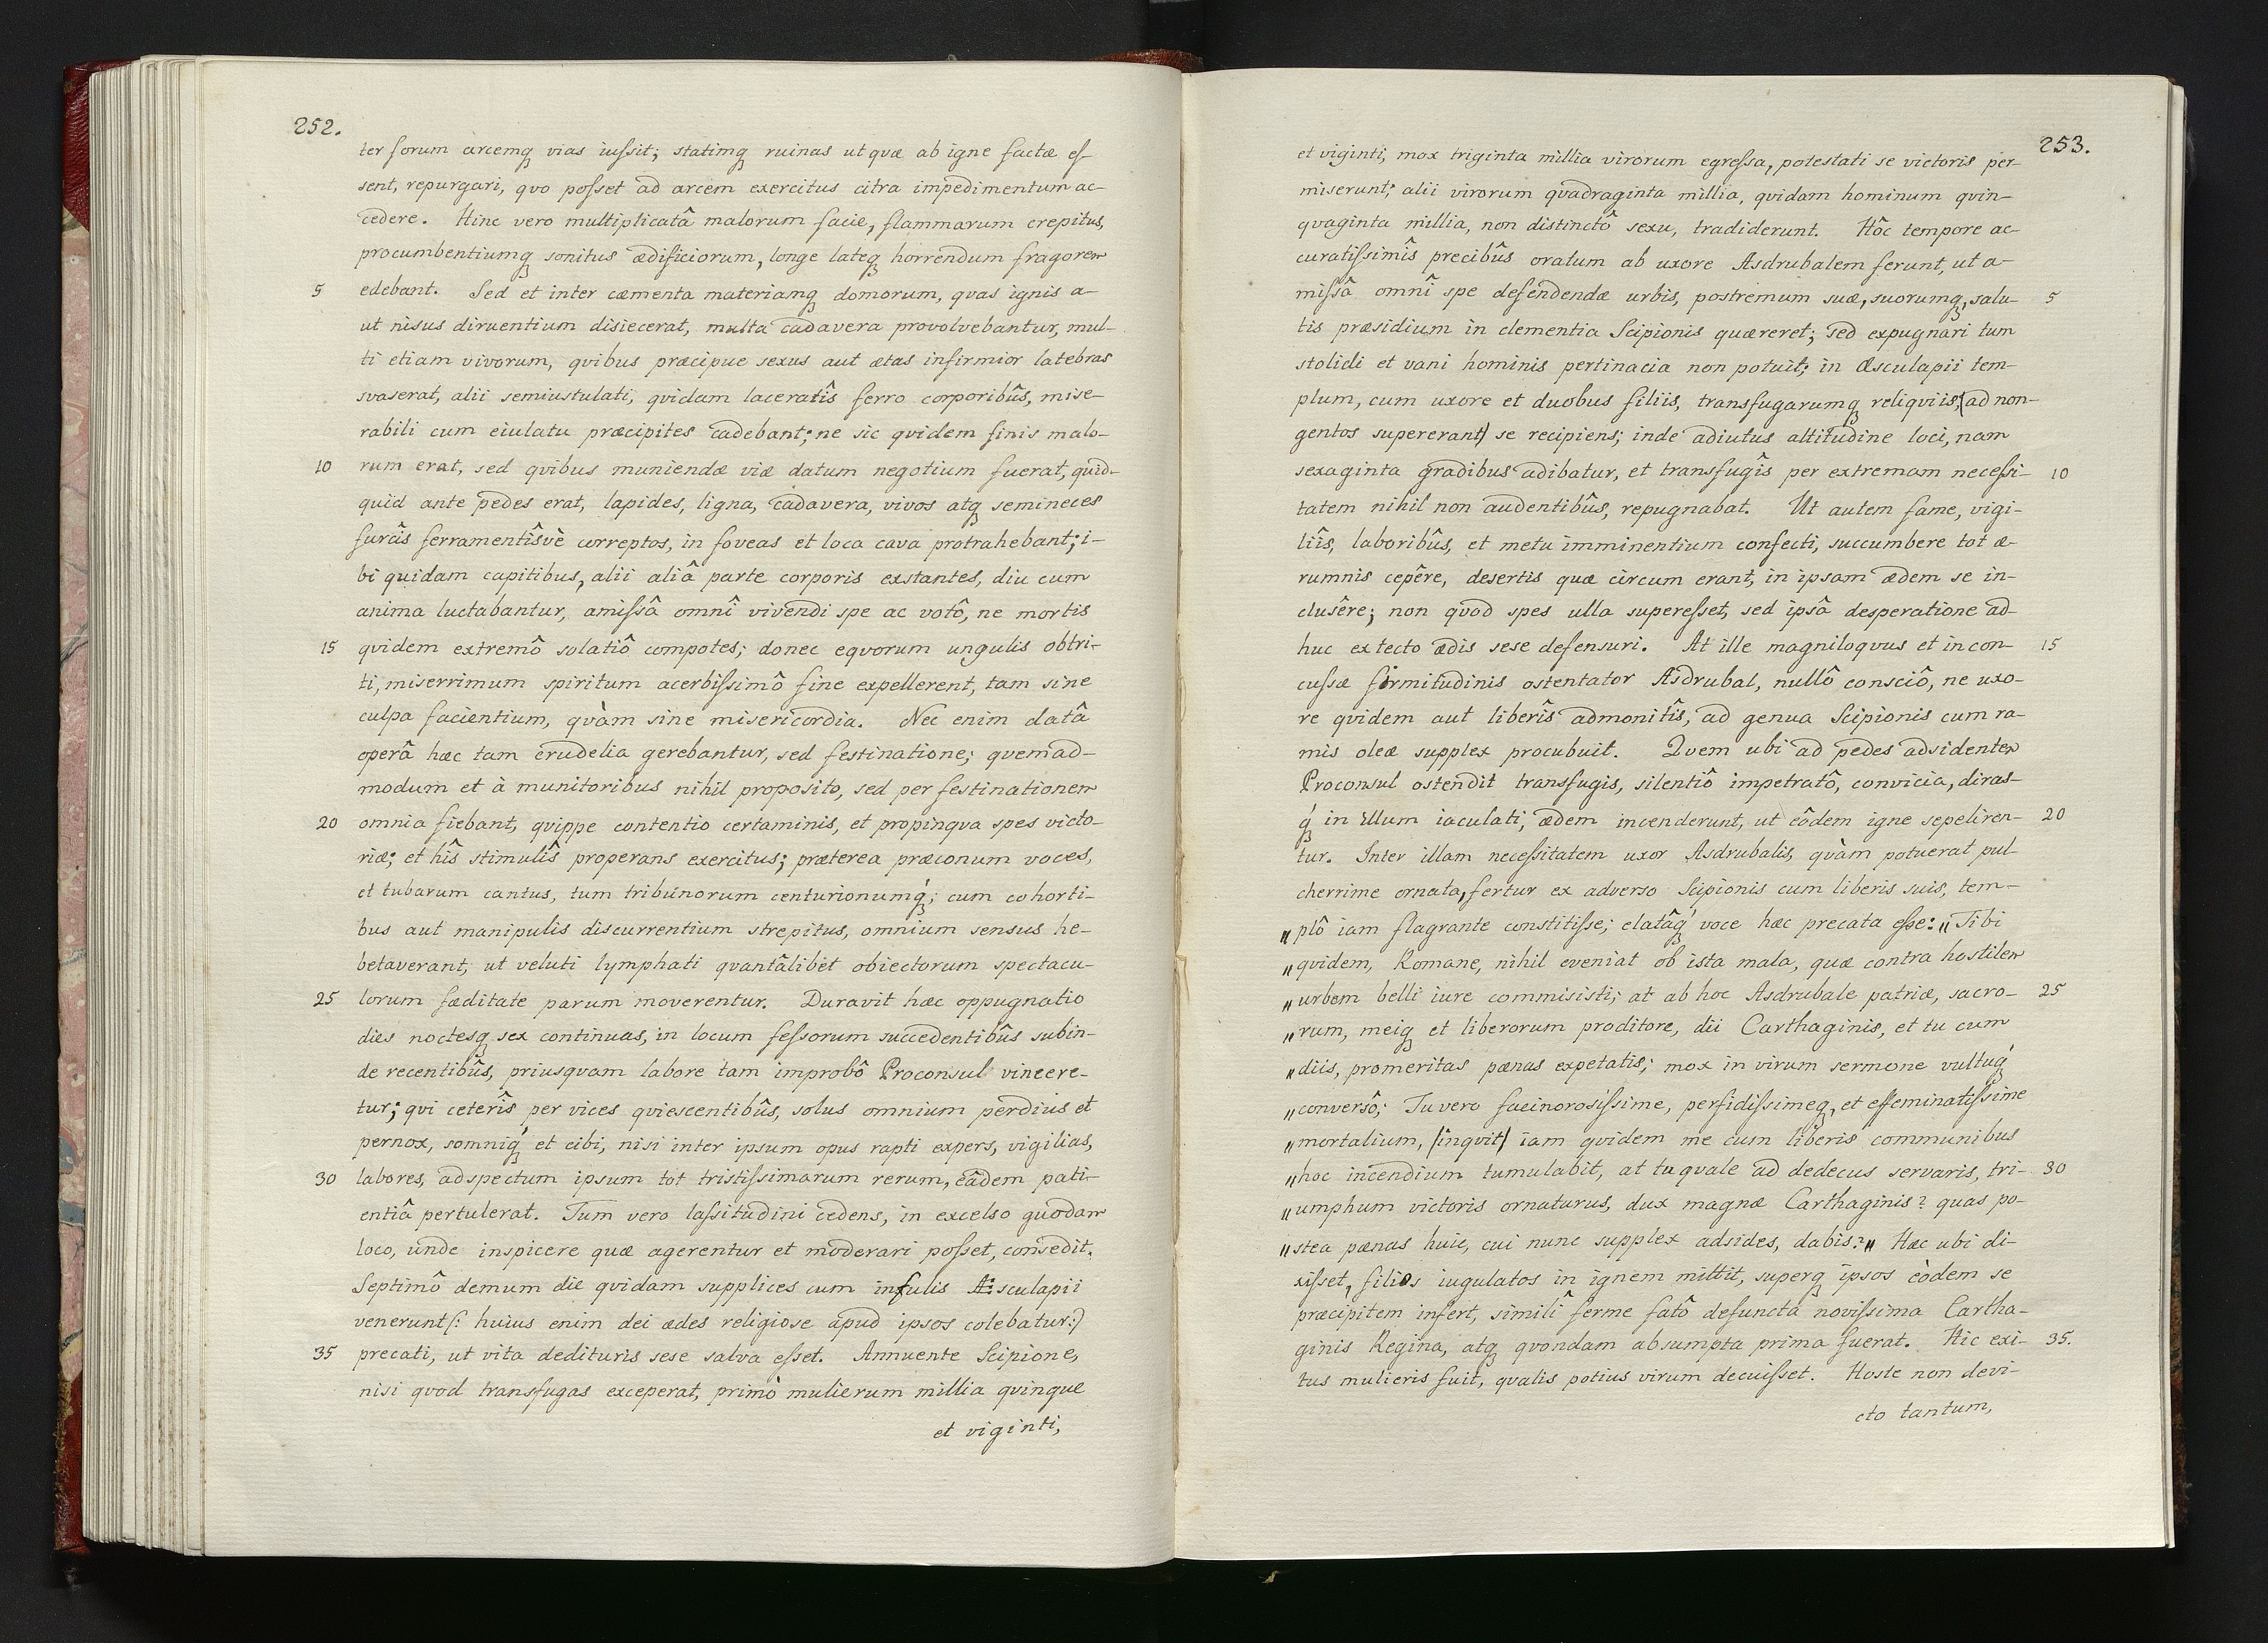 252.
ter forum arcemq́ vias iuſsit; statimq́ ruinas ut qvæ ab igne factæ eſ-
sent, repurgari, qvo poſset ad arcem exercitus citra impedimentum ac-
cedere. Hinc vero multiplicatâ malorum facie, flammarum crepitus,
procumbentiumq́ sonitus ædificiorum, longe lateq́ horrendum fragorem
5 edebant. Sed et inter cæmenta materiamq́ domorum, qvas ignis a-
ut nisus diruentium disiecerat, multa cadavera provolvebantur, mul-
ti etiam vivorum, qvibus præcipue sexus aut ætas infirmior latebras
svaserat, alii semiustulati, qvidam laceratîs ferro corporibûs, mise-
rabili cum eiulatu præcipites cadebant; ne sic qvidem finis malo-
10 rum erat, sed qvibus muniendæ viæ datum negotium fuerat, quid-
quid ante pedes erat, lapides, ligna, cadavera, vivos atq́ semineces
furcîs ferramentîsvè correptos, in foveas et loca cava protrahebant; i-
bi quidam capitibus, alii aliâ parte corporis exstantes, diu cum
anima luctabantur, amiſsâ omnî vivendi spe ac votô, ne mortis
15 qvidem extremô solatiô compotes; donec eqvorum ungulis obtri-
ti, miserrimum spiritum acerbiſsimô fine expellerent, tam sine
culpa facientium, qvàm sine misericordia. Nec enim datâ
operâ hæc tam crudelia gerebantur, sed festinatione; qvemad-
modum et à munitoribus nihil proposito, sed per festinationem
20 omnia fiebant, qvippe contentio certaminis, et propinqva spes victo-
riæ; et hîs stimulîs properans exercitus; præterea præconum voces,
et tubarum cantus, tum tribunorum centurionumq́; cum cohorti-
bus aut manipulis discurrentium strepitus, omnium sensus he-
betaverant, ut veluti lymphati qvantâlibet obiectorum spectacu-
25 lorum fæditate parum moverentur. Duravit hæc oppugnatio
dies noctesq́ sex continuas, in locum feſsorum succedentibûs subin-
de recentibûs, priusqvam labore tam improbô Proconsul vincere-
tur; qvi ceterîs per vices qviescentibûs, solus omnium perdius et
pernox, somniq́ et cibi, nisi inter ipsum opus rapti expers, vigilias,
30 labores, adspectum ipsum tot tristiſsimarum rerum, eâdem pati-
entiâ pertulerat. Tum vero laſsitudini cedens, in excelso quodam
loco, unde inspicere quæ agerentur et moderari poſset, consedit.
Septimô demum die qvidam supplices cum infulis Æsculapii
venerunt (: huius enim dei ædes religiose apud ipsos colebatur:)
35 precati, ut vita dedituris sese salva eſset. Annuente Scipione,
nisi qvod transfugas exceperat, primò mulierum millia qvinque
et viginti,
253.
et viginti, mox triginta millia virorum egreſsa, potestati se victoris per-
miserunt; alii virorum qvadraginta millia, qvidam hominum qvin-
qvaginta millia, non distinctô sexu, tradiderunt. Hôc tempore ac-
curatiſsimîs precibûs oratum ab uxore Asdrubalem ferunt, ut a-
miſsâ omnî spe defendendæ urbis, postremum suæ, suorumq́, salu- 5
tis præsidium in clementia Scipionis quæreret; sed expugnari tum
stolidi et vani hominis pertinacia non potuit; in Æsculapii tem-
plum, cum uxore et duobus filiis, transfugarumq́ reliqviis, (ad non-
gentos supererant) se recipiens; inde adiutus altitudine loci, nam
sexaginta gradibus adibatur, et transfugîs per extremam neceſsi- 10
tatem nihil non audentibûs, repugnabat. Ut autem fame, vigi-
liîs, laboribûs, et metu imminentium confecti, succumbere tot æ-
rumnis cepêre, desertis quæ circum erant, in ipsam ædem se in-
clusêre; non qvod spes ulla supereſset, sed ipsâ desperatione ad-
huc ex tecto ædis sese defensuri. At ille magniloqvus et incon- 15
cuſsæ firmitudinis ostentator Asdrubal, nullô consciô, ne uxo-
re qvidem aut liberîs admonitîs, ad genua Scipionis cum ra-
mis oleæ supplex procubuit. Qvem ubi ad pedes adsidentem
Proconsul ostendit transfugis, silentiô impetratô, convicia, diras-
q́ in illum iaculati, ædem incenderunt, ut eôdem igne sepeliren- 20
tur. Inter illam neceſsitatem uxor Asdrubalis, qvàm potuerat pul-
cherrime ornata, fertur ex adverso Scipionis cum liberis suis, tem-
„ plô iam flagrante constitiſse; elatâq́ voce hæc precata eſse: „ Tibi
„ qvidem, Romane, nihil eveniat ob ista mala, quæ contra hostilem
„ urbem belli iure commisisti; at ab hoc Asdrubale patriæ, sacro- 25
„ rum, meiq́ et liberorum proditore, dii Carthaginis, et tu cum
„ diis, promeritas pœnas expetatis; mox in virum sermone vultuq́
„ conversô; Tu vero facinorosiſsime, perfidiſsimeq́, et effeminatiſsime
„ mortalium, (inqvit) iam qvidem me cum liberis communibus
„ hoc incendium tumulabit, at tu quale ad dedecus servaris, tri- 30
„ umphum victoris ornaturus, dux magnæ Carthaginis? quas po-
„ stea pœnas huic, cui nunc supplex adsides, dabis? „ Hæc ubi di-
xiſset, filios iugulatos in ignem mittit, superq́ ipsos eòdem se
præcipitem infert, similî ferme fatô defuncta novissima Cartha-
ginis Regina, atq́ qvondam absumpta prima fuerat. Hic exi- 35.
tus mulieris fuit, qvalis potius virum decuiſset. Hoste non devi-
cto tantum,